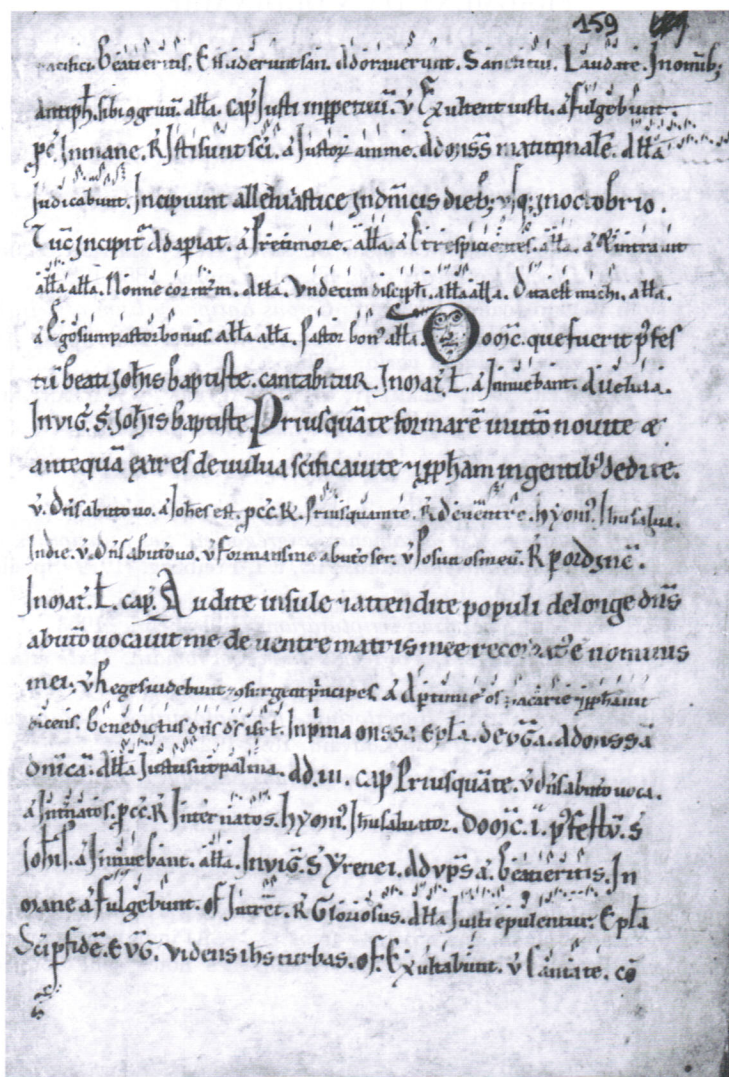 159
pacifici. beati eritis. Et ceciderunt san. Adoraverunt. Sanctivi. Laudate. In omib;
antiph. sibi 9gruū. alla. cap Justi inppetuū. v Exultent iusti. a Fulgebunt.
pc. In mane. R Isti sunt sci. a Justor anime. Ad oīss matutinale. Alla
Judicabunt. Incipiunt alleluiastice in dnicis dieb; usq; in octobrio.
Tūc incipit Adapiat. a Pretimore. alla. a Et respicientes. alla. a Et intravit
alla alla. Nonne cor nrm. alla. Undecim discipli. alla alla. Data est michi. alla.
a Ego sum pastor bonus. alla alla. Pastor bon9 alla. Domic. que fuerit p fes
tū beati Johis baptiste. cantabitur. In mat. L. a Innuebant. alleluia.
In vig. S. Johis baptiste Priusquā te formarē in utō novi te &
antequā exires de vulva scificavi te 7 ppham in gentib9 dedi te.
v. Dns ab uto vo. a Johes est. pcc. R. Priusquam te. R De ventre. hymn9. Ihu salva.
In die. v. Dns ab uto vo. v Formans me ab uto ser. v Posuit os meū. R p ordinē.
In mat. L. cap. Audite insule 7 attendite populi de longe dns
ab utō vocavit me de ventre matris mee recordat9 e nominis
mei. v Reges videbunt 7 9surgent principes. a Aptum e os zacarie 7 pphavit
dicens. benedictus dns ds isrl. In pma missa. Epla. Evga. Ad missā
dmicā. Alla Justus ut palma. Ad .iii. cap Priusquā te. v dns ab uto voca.
a Int natos. pcc. R Inter natos. hymn9. Ihu salvator. Domic. i. p festū. S
Johis. a Innuebant. alla. In vig. S Yrenei. Ad vps. a. beati eritis. In
mane a Fulgebunt. of Intret. R Gloriosus. Alla Justi epulentur. Epla
Sci p fidē. Evg. Videns ihs turbas. of. Exultabunt. v Cantate. cō